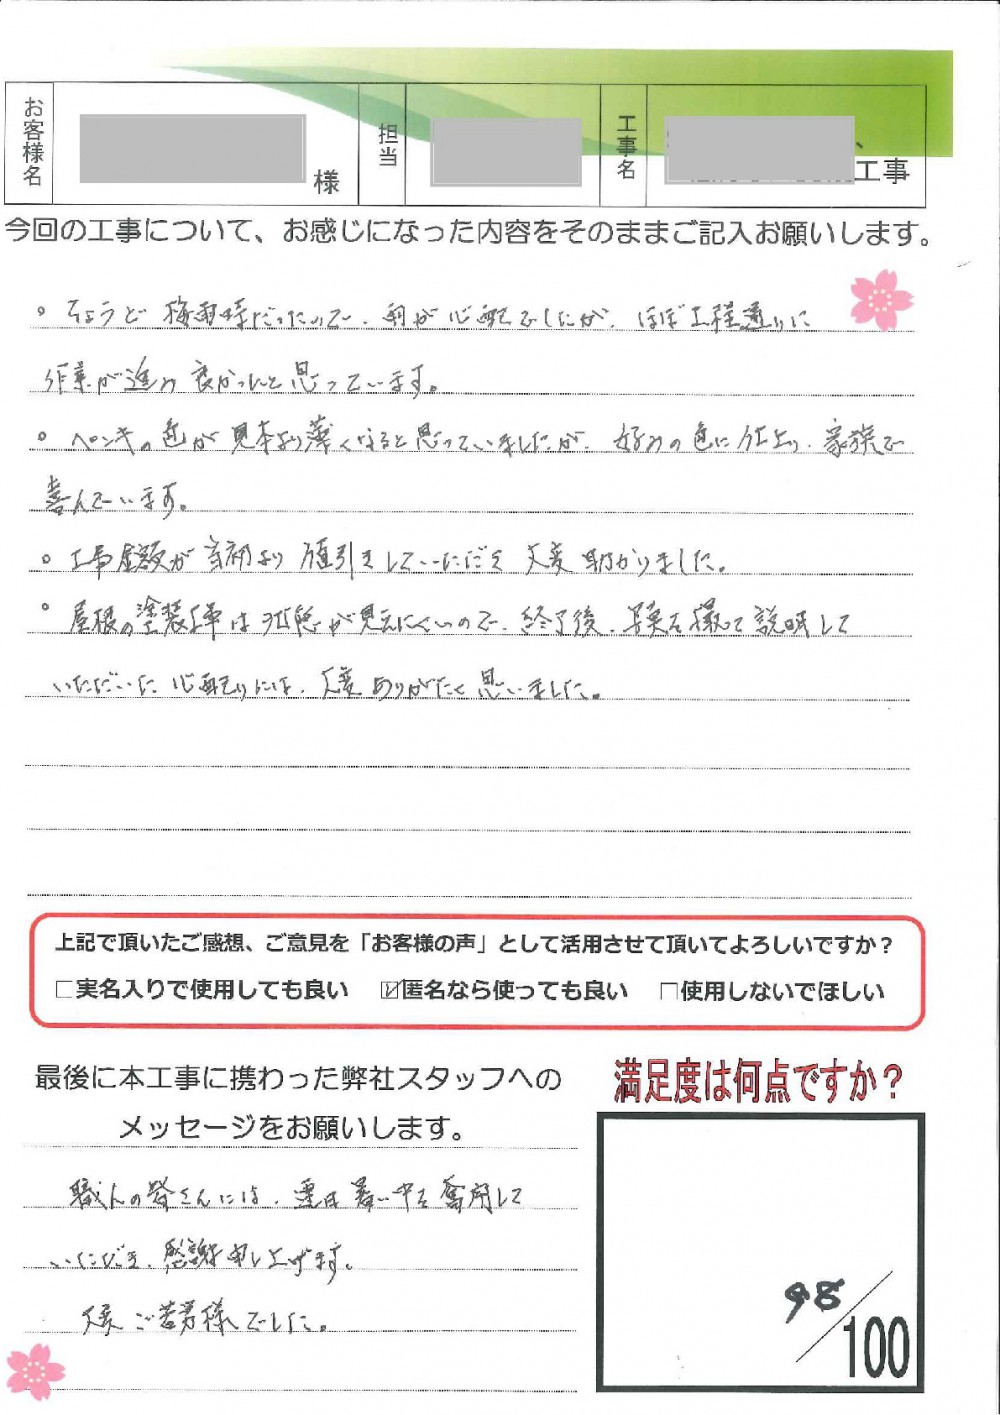 お客様名 様 担当 工事名 工事
今回の工事について、お感じになった内容をそのままご記入お願いします。
。ちょうど 梅雨時だったので、雨が心配でしたが、ほぼ工程通りに
作業が進み 良かったと思っています。
。ペンキの色が見本より薄くなると思っていましたが、好みの色に仕上り、家族で
喜んでいます。
。工事金額が当初より 値引きしていただき 大変 助かりました。
。屋根の塗装工事は状態が見えにくいので、終了後、写真を撮って説明して
いただいた 心配りには、大変ありがたく思いました。
上記で頂いたご感想、ご意見を「お客様の声」として活用させて頂いてよろしいですか？
□実名入りで使用しても良い ☑匿名なら使っても良い □使用しないでほしい
最後に本工事に携わった弊社スタッフへの
メッセージをお願いします。
職人の皆さんには、連日 暑い中を 奮闘して
いただき、感謝申し上げます。
大変 ご苦労様でした。
満足度は何点ですか？
98/100